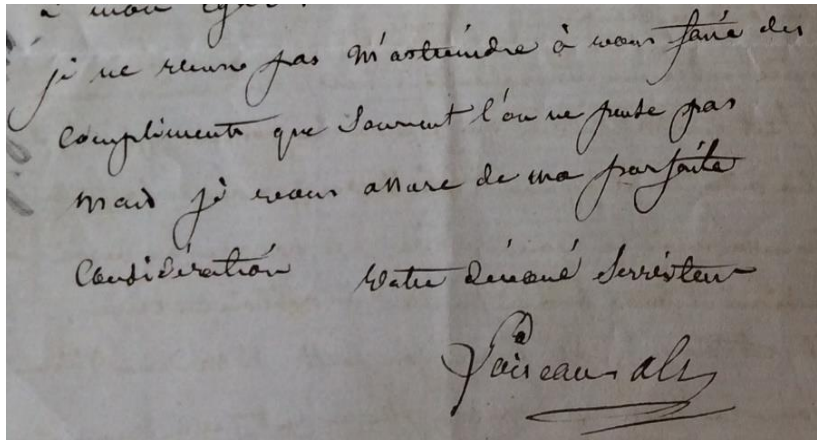 à mon égard
je ne veux pas m'astreindre à vous faire des
compliments que souvent l'on ne pense pas
mais je vous assure de ma parfaite
considération votre dévoué serviteur